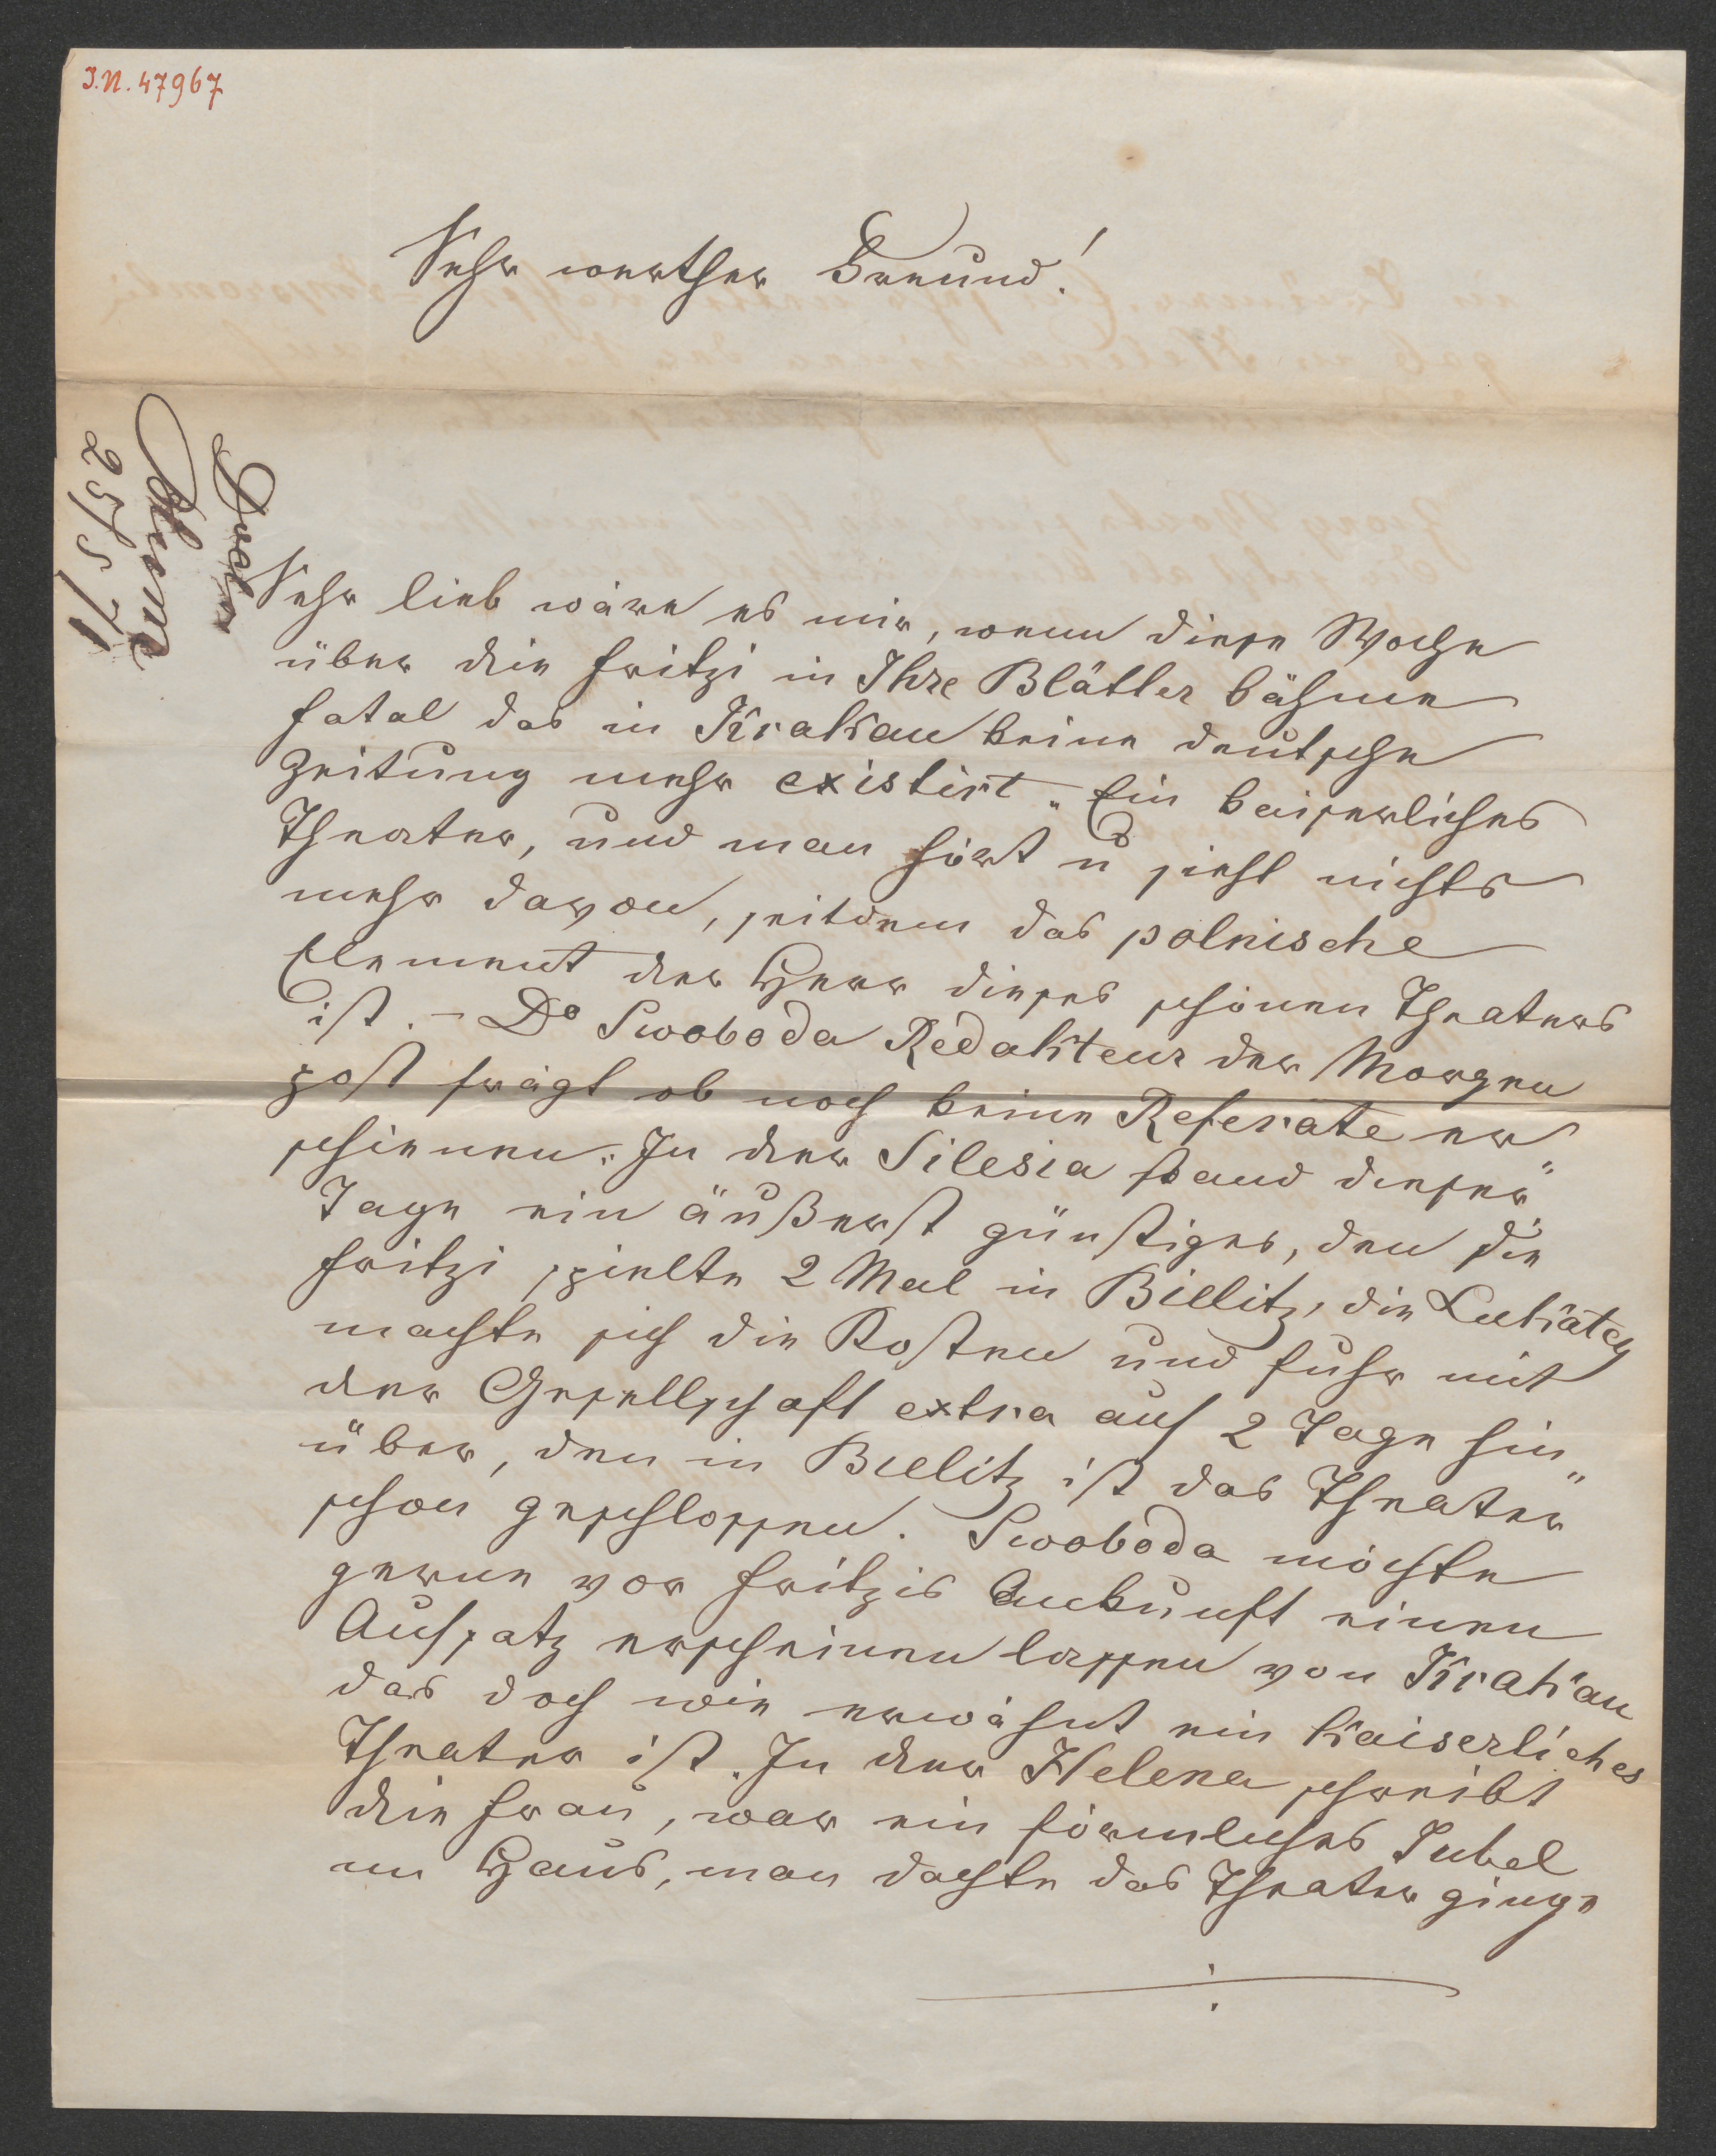 I.N. 47967
Sehr werther Freund!
Wien
25/5 71
Sehr lieb wäre es mir, wenn diese Woche
über die Fritzi in Ihre Blätter kähme
fatal das in Krakau keine deutsche
Zeitung mehr existirt. Ein kaiserliches
Theater, und man hört u sieht nichts
mehr davon, seitdem das polnische
Element der Herr dieses schönen Theaters
ist. – Dr Swoboda Redakteur der Morgen
post frägt ob noch keine Referate er„
schienen. In der Silesia stand dieser
Tage ein äußerst günstiges, den die
Fritzi spielte 2 Mal in Bielitz, die
machte sich die Kosten und fuhr mit
der Gesellschaft extra auf 2 Tage hin„
über, den in Bielitz ist das Theater
schon geschlossen. Swoboda möchte
gerne vor Fritzis Ankunft einen
Aufsatz erscheinen lassen von Krakau
das doch wie erwähnt ein kaiserliches
Theater ist. In der Helena schreibt
die Frau, war ein förmliches Jubel
im Haus, man dachte das Theater ginge